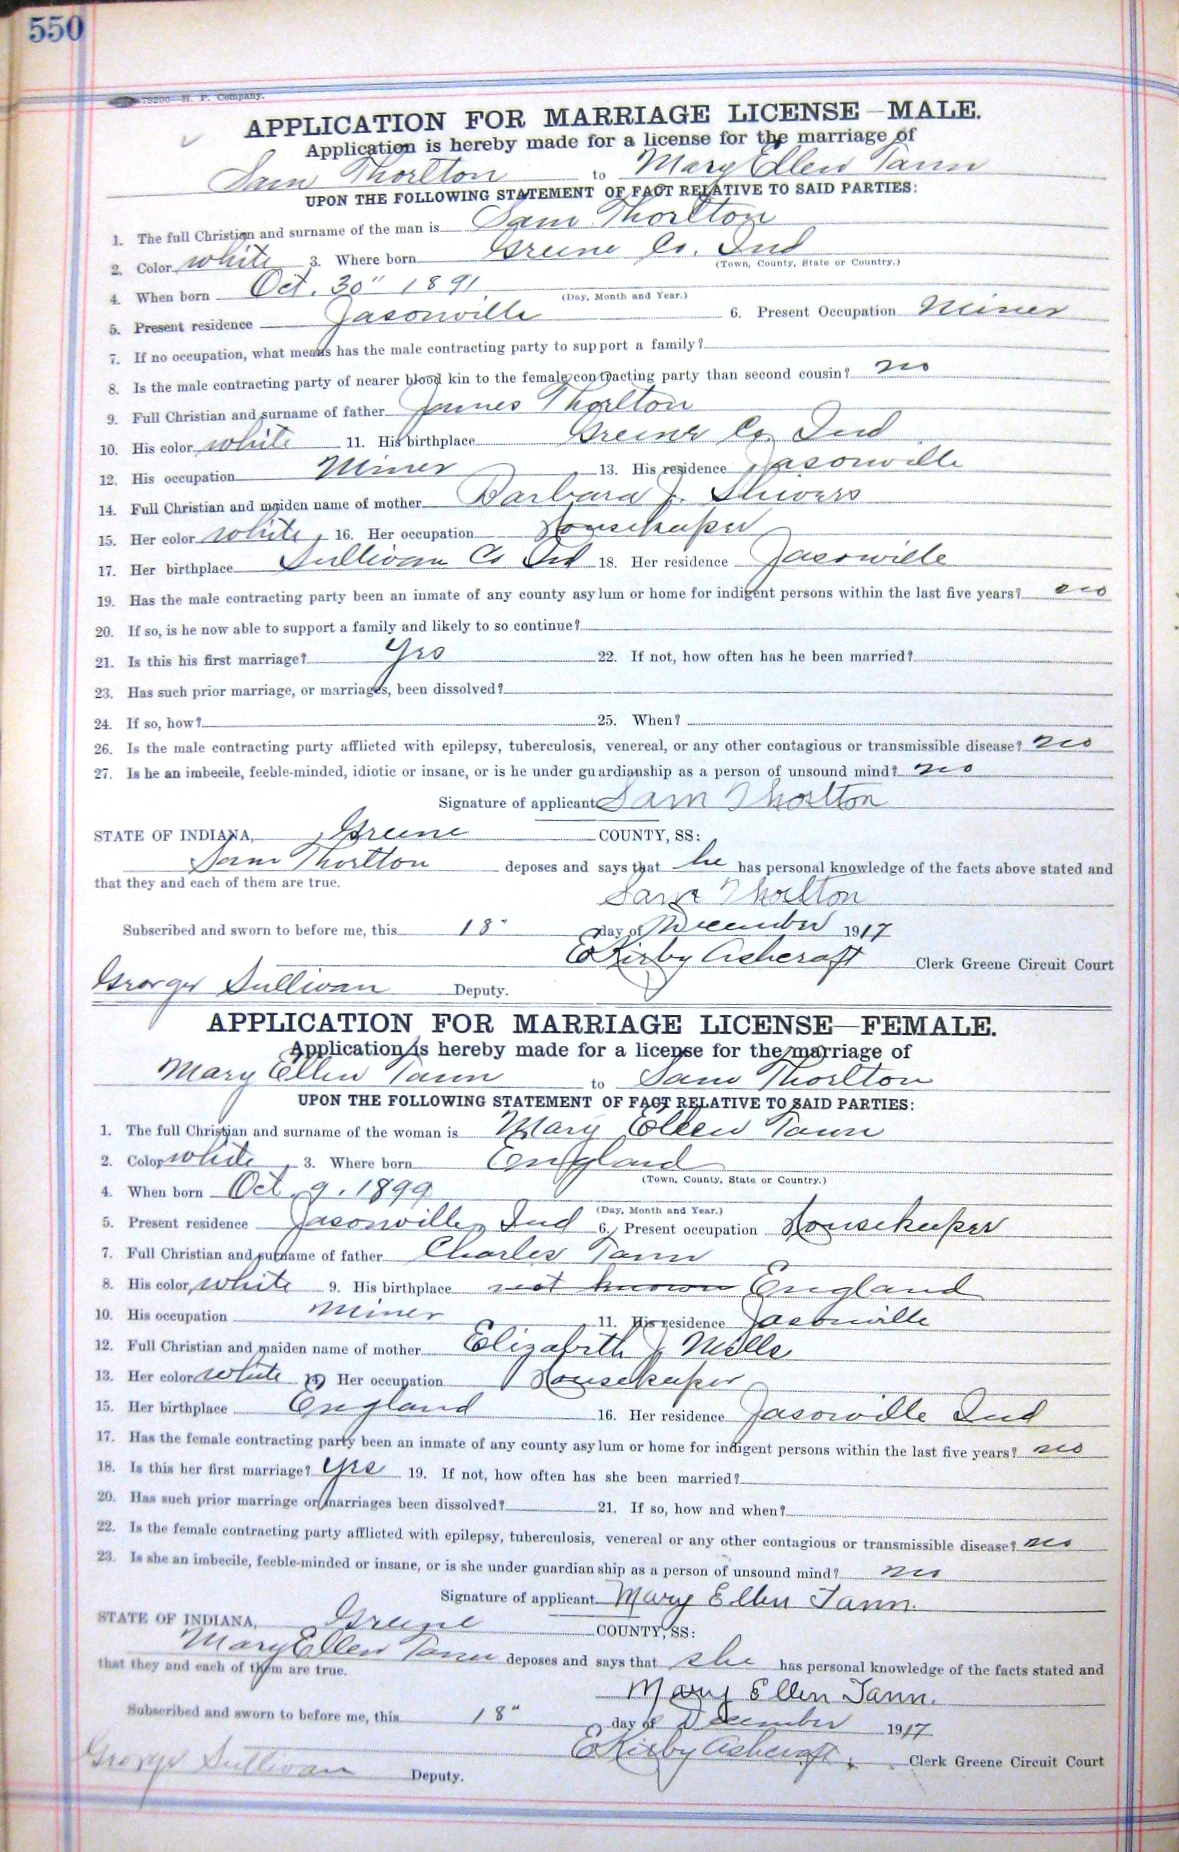 550
79200—H. P. Company.
APPLICATION FOR MARRIAGE LICENSE—MALE.
Application is hereby made for a license for the marriage of
Sam Thorlton to Mary Ellen Tann
UPON THE FOLLOWING STATEMENT OF FACT RELATIVE TO SAID PARTIES:
1. The full Christian and surname of the man is Sam Thorlton
2. Color white 3. Where born Greene Co. Ind
(Town, County, State or Country.)
4. When born Oct. 30" 1891
(Day, Month and Year.)
5. Present residence Jasonville 6. Present Occupation Miner
7. If no occupation, what means has the male contracting party to support a family?
8. Is the male contracting party of nearer blood kin to the female contracting party than second cousin? no
9. Full Christian and surname of father James Thorlton
10. His color white 11. His birthplace Greene Co. Ind
12. His occupation Miner 13. His residence Jasonville
14. Full Christian and maiden name of mother Barbara J. Shivers
15. Her color white 16. Her occupation Housekeeper
17. Her birthplace Sullivan Co Ind 18. Her residence Jasonville
19. Has the male contracting party been an inmate of any county asylum or home for indigent persons within the last five years? no
20. If so, is he now able to support a family and likely to so continue?
21. Is this his first marriage? Yes 22. If not, how often has he been married?
23. Has such prior marriage, or marriages, been dissolved?
24. If so, how? 25. When?
26. Is the male contracting party afflicted with epilepsy, tuberculosis, venereal, or any other contagious or transmissible disease? no
27. Is he an imbecile, feeble-minded, idiotic or insane, or is he under guardianship as a person of unsound mind? no
Signature of applicant Sam Thorlton
STATE OF INDIANA, Greene COUNTY, SS:
Sam Thorlton deposes and says that he has personal knowledge of the facts above stated and
that they and each of them are true.
Sam Thorlton
Subscribed and sworn to before me, this 18" day of December 1917
E Kirby Ashcraft Clerk Greene Circuit Court
George Sullivan Deputy.
APPLICATION FOR MARRIAGE LICENSE—FEMALE.
Application is hereby made for a license for the marriage of
Mary Ellen Tann to Sam Thorlton
UPON THE FOLLOWING STATEMENT OF FACT RELATIVE TO SAID PARTIES:
1. The full Christian and surname of the woman is Mary Ellen Tann
2. Color white 3. Where born England
(Town, County, State or Country.)
4. When born Oct. 9. 1899
(Day, Month and Year.)
5. Present residence Jasonville, Ind 6. Present occupation Housekeeper
7. Full Christian and surname of father Charles Tann
8. His color white 9. His birthplace not known England
10. His occupation Miner 11. His residence Jasonville
12. Full Christian and maiden name of mother Elizabeth J Mills
13. Her color white 14. Her occupation Housekeeper
15. Her birthplace England 16. Her residence Jasonville Ind
17. Has the female contracting party been an inmate of any county asylum or home for indigent persons within the last five years? no
18. Is this her first marriage? yes 19. If not, how often has she been married?
20. Has such prior marriage or marriages been dissolved? 21. If so, how and when?
22. Is the female contracting party afflicted with epilepsy, tuberculosis, venereal or any other contagious or transmissible disease? no
23. Is she an imbecile, feeble-minded or insane, or is she under guardianship as a person of unsound mind? no
Signature of applicant Mary Ellen Tann.
STATE OF INDIANA, Greene COUNTY, SS:
Mary Ellen Tann deposes and says that she has personal knowledge of the facts stated and
that they and each of them are true.
Mary Ellen Tann.
Subscribed and sworn to before me, this 18" day of December 1917
E Kirby Ashcraft. Clerk Greene Circuit Court
George Sullivan Deputy.